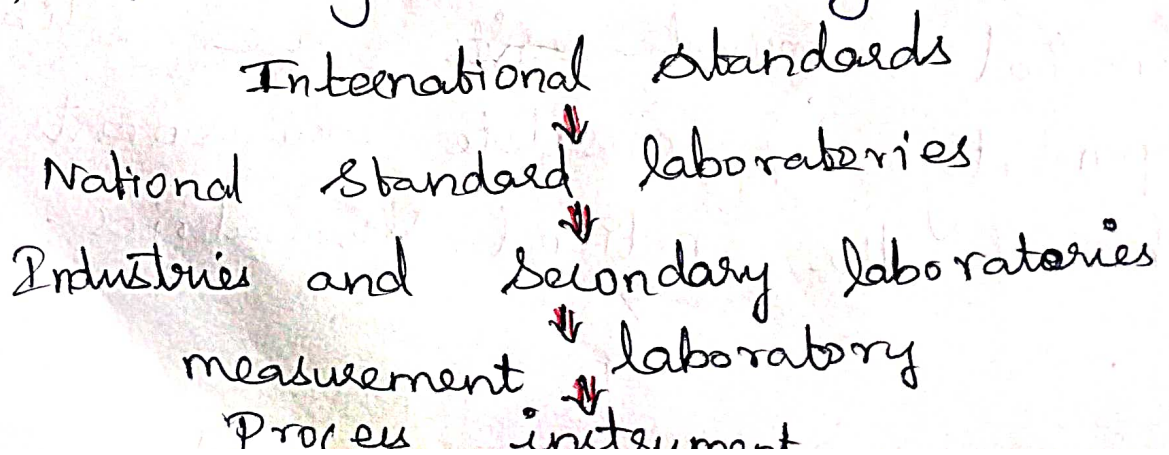 International standards
National standard laboratories
Industries and Secondary laboratories
measurement laboratory
Process instrument